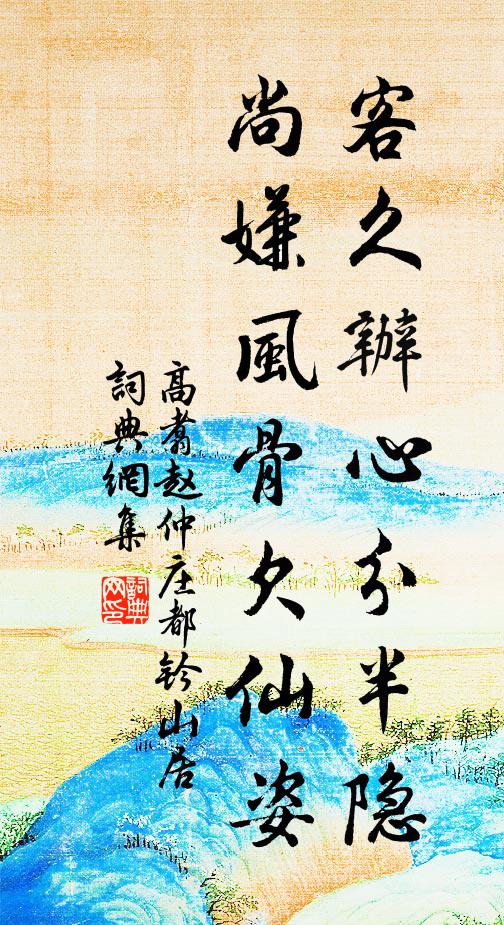 客久辦心分半隐
尚嫌風骨欠仙姿
高翥赵仲庄都钤山居
詞典網集
詞典网印